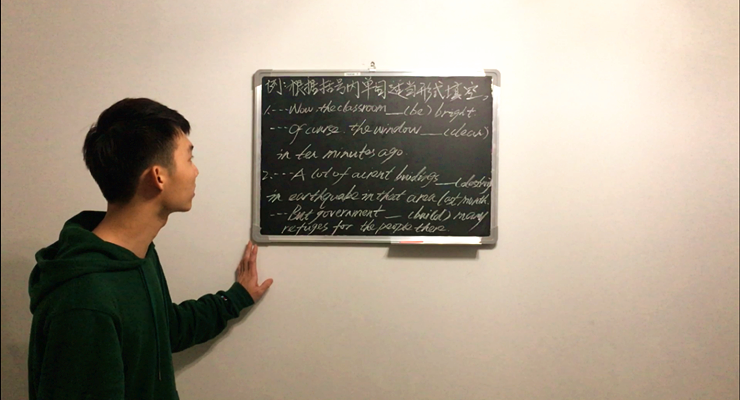 例:根据括号内单词适当形式填空。
1.---Now the classroom __(be) bright
---Of course. the window __(clean)
in ten minutes ago.
2.---A lot of acient buildings __(destroy)
in earthquake in that area last month.
---But government __(build) many
refuges for the people there.